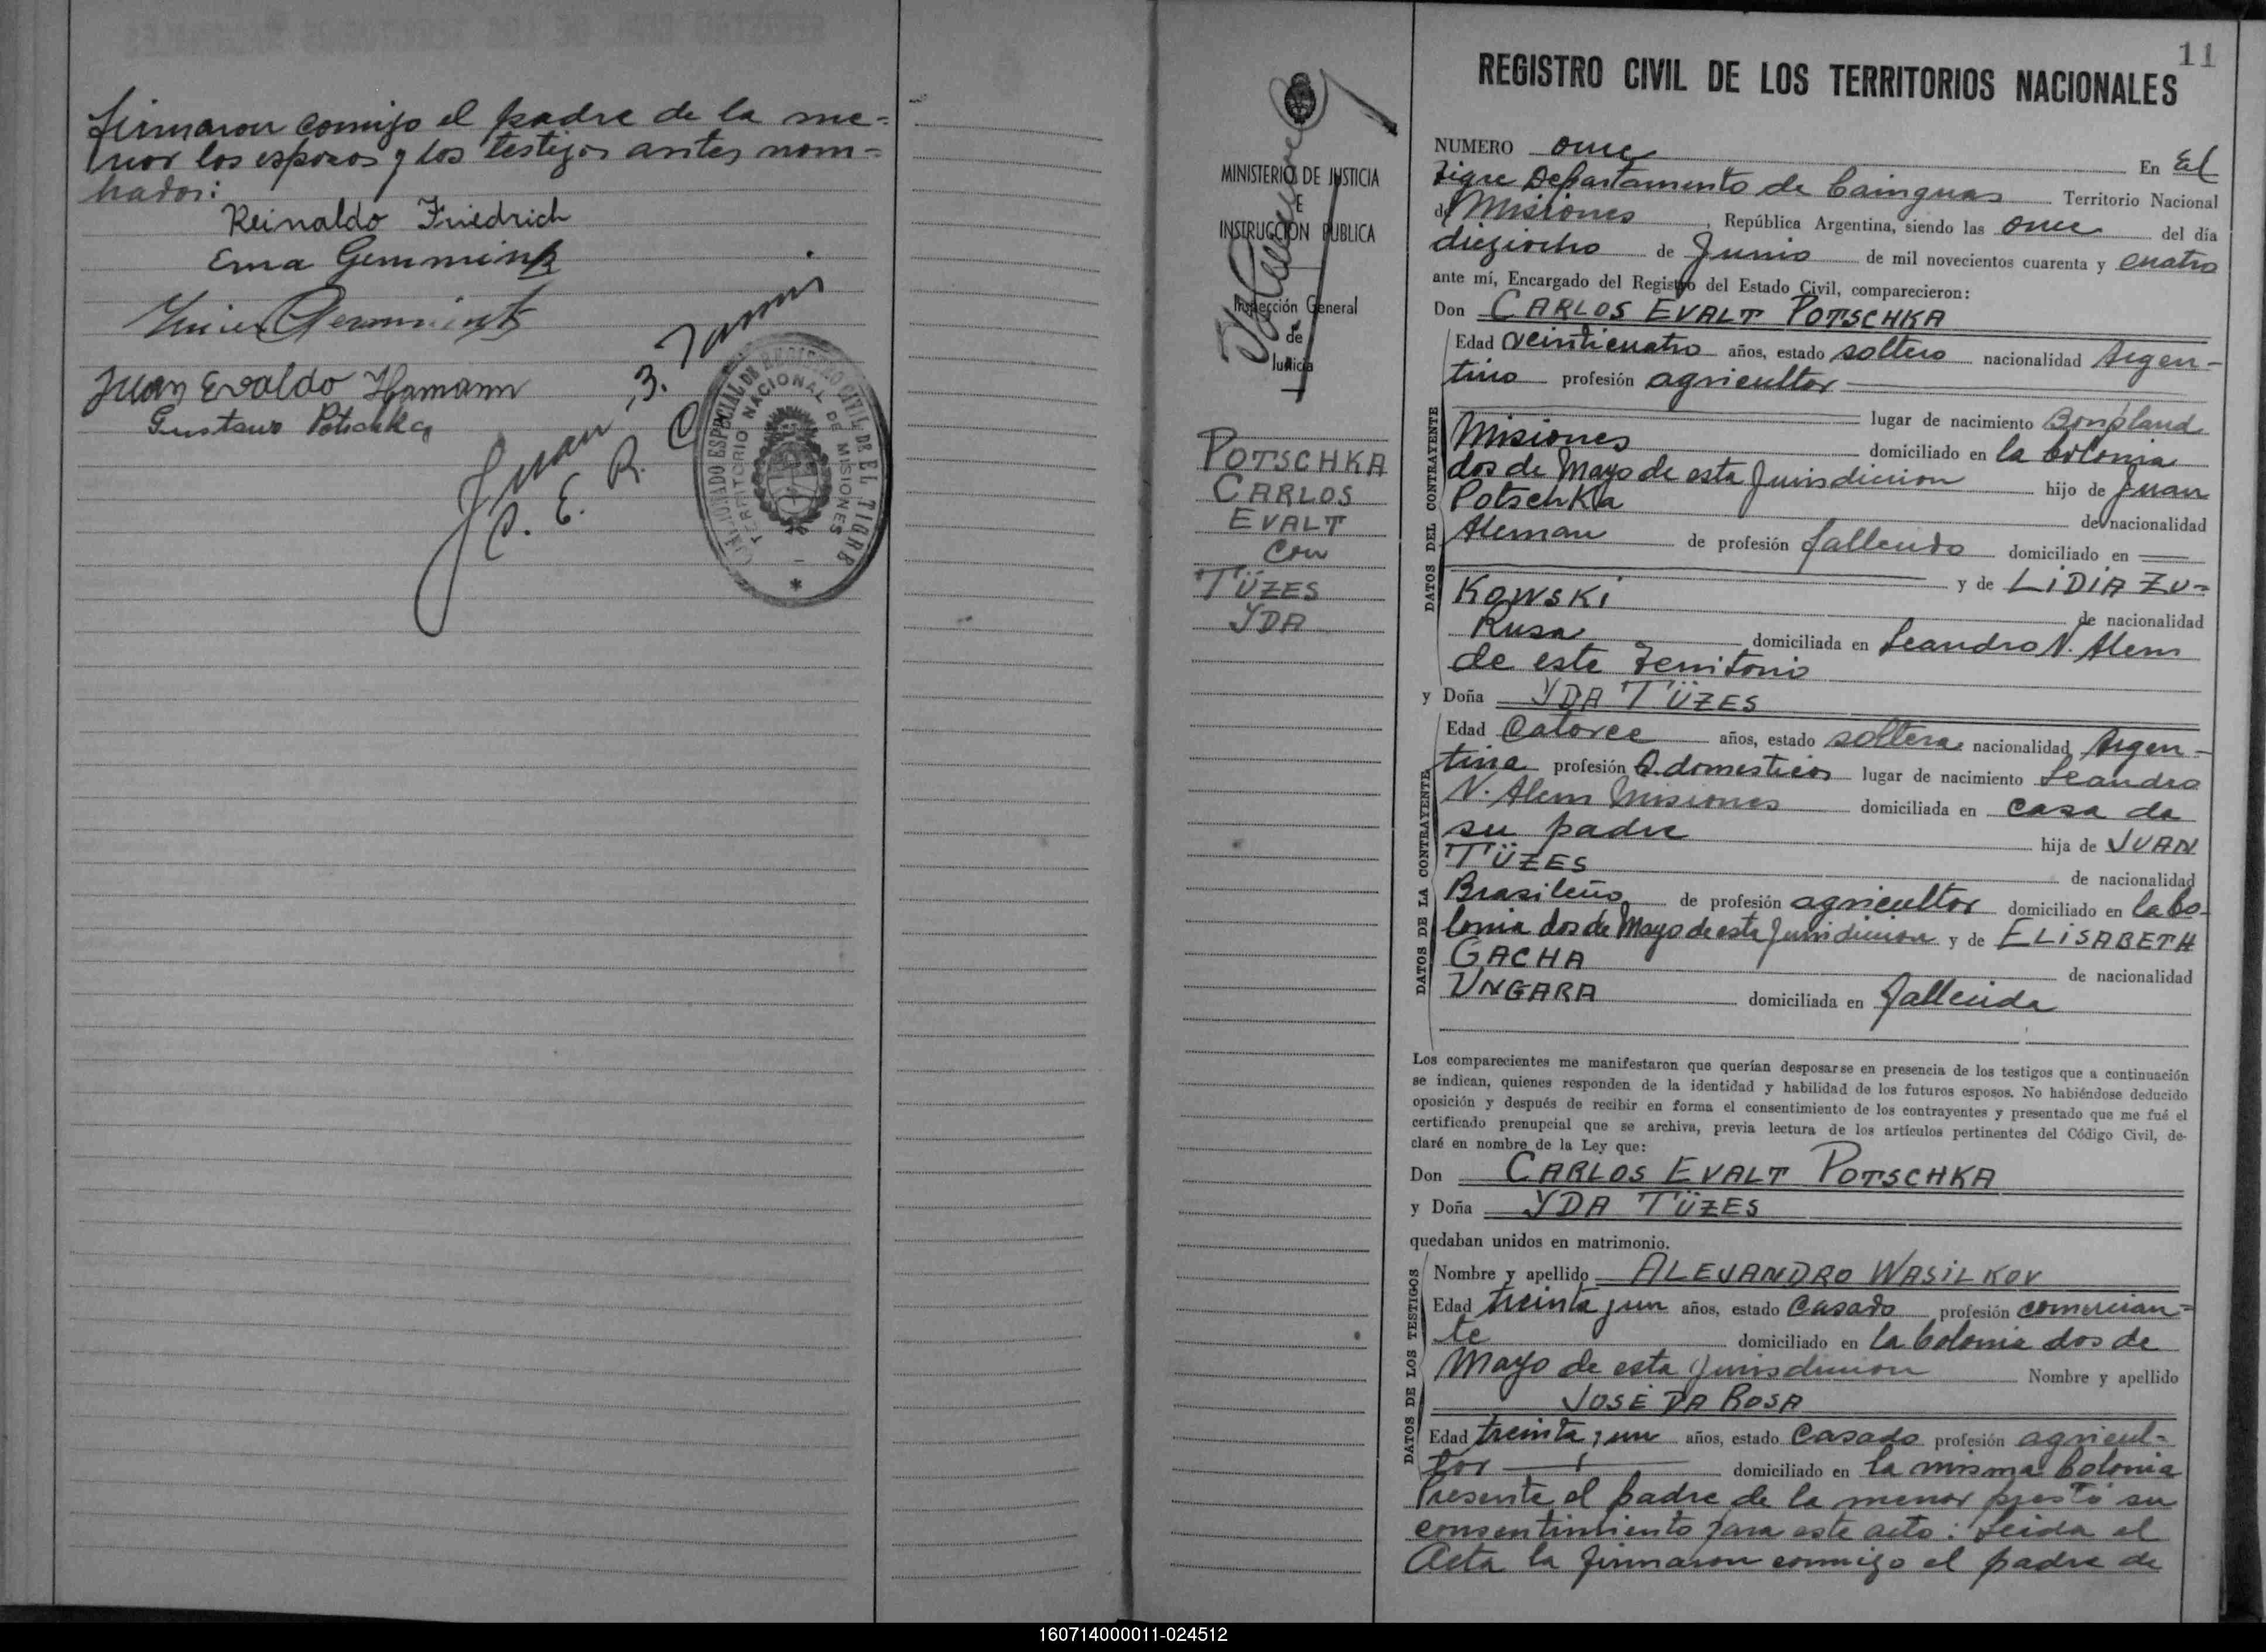 firmaron comigo el padre de la me=
nor los esposos y los testigos antes nom=
brados:
Reinaldo Friedrich
Ema Gemmink
Juan Evaldo Hamann
Gustavo Potschka
C. E. R. C
COMISIONADO ESPECIAL DE REGISTRO CIVIL DE EL TIGRE
TERRITORIO NACIONAL DE MISIONES
MINISTERIO DE JUSTICIA
E
INSTRUCCIÓN PUBLICA
Inspección General
de
Justicia
POTSCHKA
CARLOS
EVALT
con
TÜZES
YDA
11
REGISTRO CIVIL DE LOS TERRITORIOS NACIONALES
NUMERO once En El
Tigre Departamento de Cainguas Territorio Nacional
de Misiones, República Argentina, siendo las once del día
dieziocho de Junio de mil novecientos cuarenta y cuatro
ante mí, Encargado del Registro del Estado Civil, comparecieron:
Don CARLOS EVALT POTSCHKA
DATOS DEL CONTRAYENTE
Edad veinticuatro años, estado soltero nacionalidad Argen-
tino profesión agricultor
lugar de nacimiento Bonpland
Misiones domiciliado en la Colonia
dos de Mayo de esta Jurisdicion hijo de Juan
Potschka de nacionalidad
Aleman de profesión fallecido domiciliado en
y de LIDIA ZU=
KOWSKI de nacionalidad
Rusa domiciliada en Leandro N. Alem
de este Territorio
y Doña YDA TÜZES
DATOS DE LA CONTRAYENTE
Edad Catorce años, estado soltera nacionalidad Argen-
tina profesión Q. domesticos lugar de nacimiento Leandro
N. Alem Misiones domiciliada en casa de
su padre hija de JUAN
TÜZES de nacionalidad
Brasileño de profesión agricultor domiciliado en la Co-
lonia dos de Mayo de esta Jurisdicion y de ELISABETH
GACHA de nacionalidad
UNGARA domiciliada en fallecida
Los comparecientes me manifestaron que querían desposarse en presencia de los testigos que a continuación
se indican, quienes responden de la identidad y habilidad de los futuros esposos. No habiéndose deducido
oposición y después de recibir en forma el consentimiento de los contrayentes y presentado que me fué el
certificado prenupcial que se archiva, previa lectura de los artículos pertinentes del Código Civil, de-
claré en nombre de la Ley que:
Don CARLOS EVALT POTSCHKA
y Doña YDA TÜZES
quedaban unidos en matrimonio.
DATOS DE LOS TESTIGOS
Nombre y apellido ALEJANDRO WASILKOV
Edad treinta y un años, estado Casado profesión comercian=
te domiciliado en la Colonia dos de
Mayo de esta Jurisdicion Nombre y apellido
JOSÉ DA ROSA
Edad treinta y un años, estado Casado profesión agricul-
tor domiciliado en la misma Colonia
Presente el padre de la menor prestó su
consentimiento para este acto: Leida el
Acta la firmaron conmigo el padre de
160714000011-024512